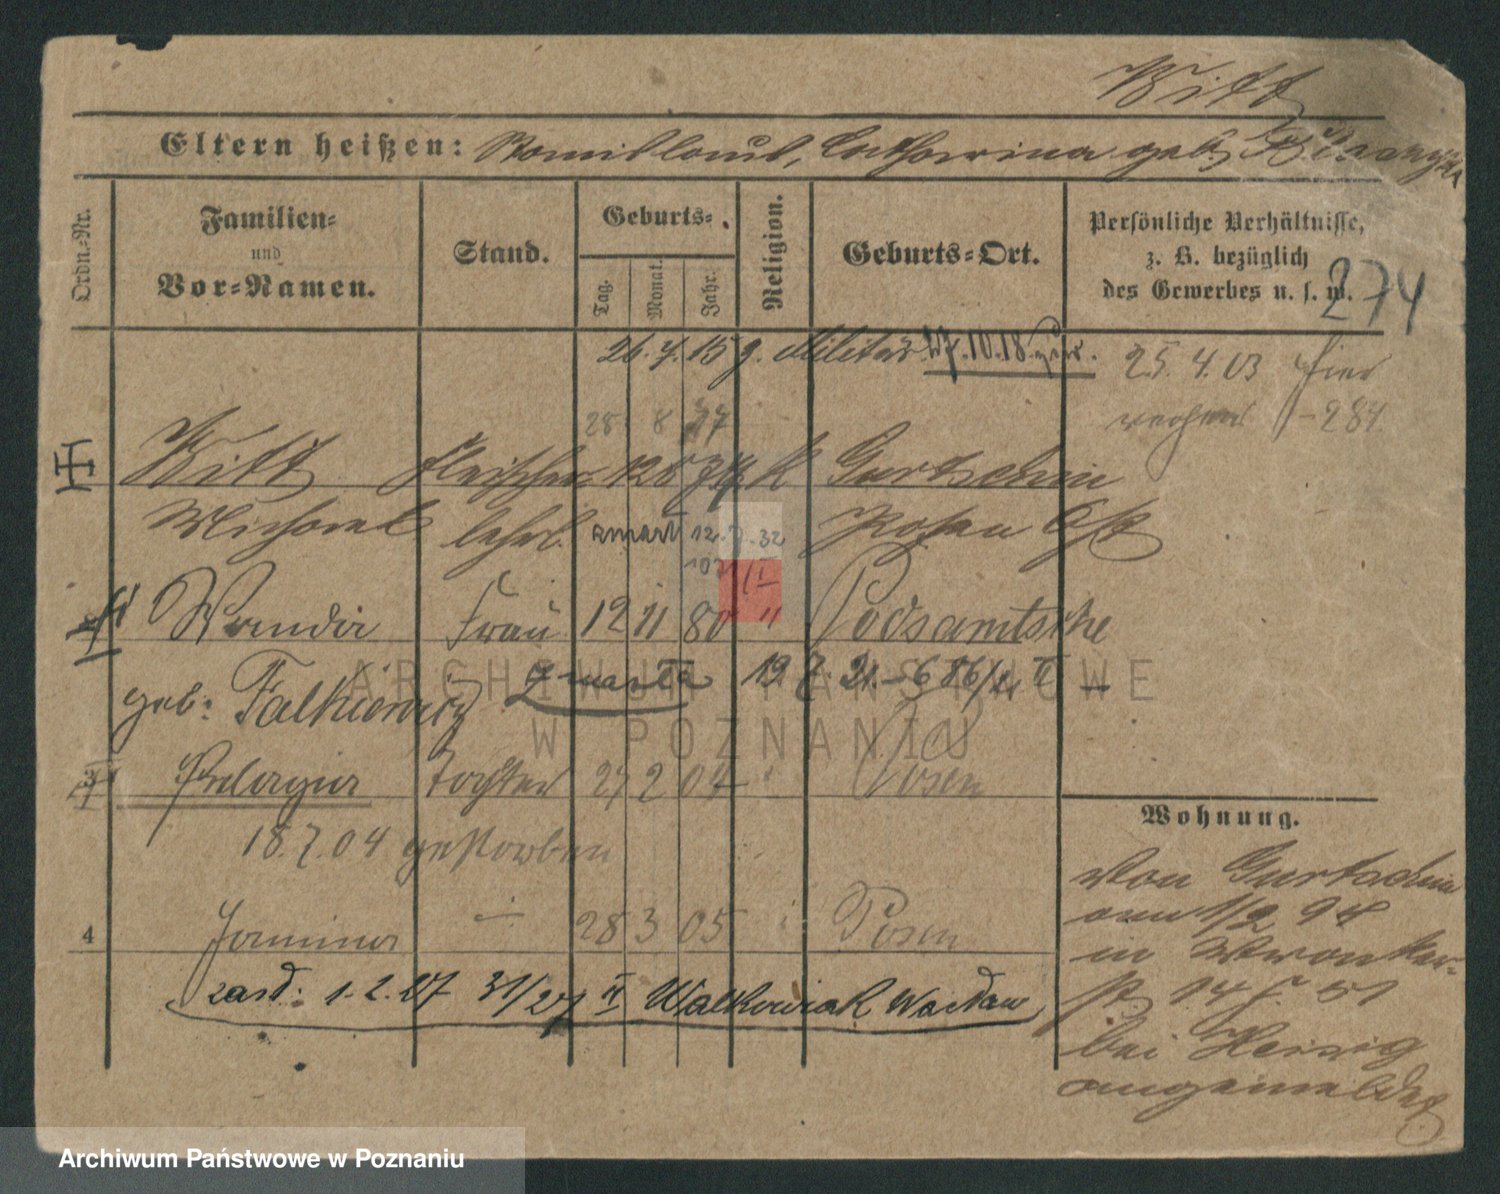 Witt
Eltern heißen: Stanislaus, Catharina geb.
Ordn.-Nr.
Familien- und Vor-Namen.
Stand.
Geburts-
Tag.
Monat.
Jahr.
Religion.
Geburts-Ort.
Persönliche Verhältnisse,
z. B. bezüglich
des Gewerbes u. s. w.
274
26. 4. 15 z. Militär 27.10.18 zur.
25. 4. 03 hier
28 8 77
284
Witt Fleischer K Gurtschin
Michael lehrl. zmarł 12.7.32 Posen Ost
Wanda Frau 12 11 80 " Podsamtsche
geb: Falkiewicz zmarła 19.7.21.-686/21 II
3 Pelagia Tochter 27 2 04 Posen
18.7.04 gestorben
4 Janina 28 3 05 Posen
zaśl. 1.2.27 31/27 II Walkowiak Wacław
Wohnung.
Von Gurtschin
am 1/2 94
in Wronker-
str 14
bei
angemeldet
ARCHIWUM PAŃSTWOWE
W POZNANIU
Archiwum Państwowe w Poznaniu